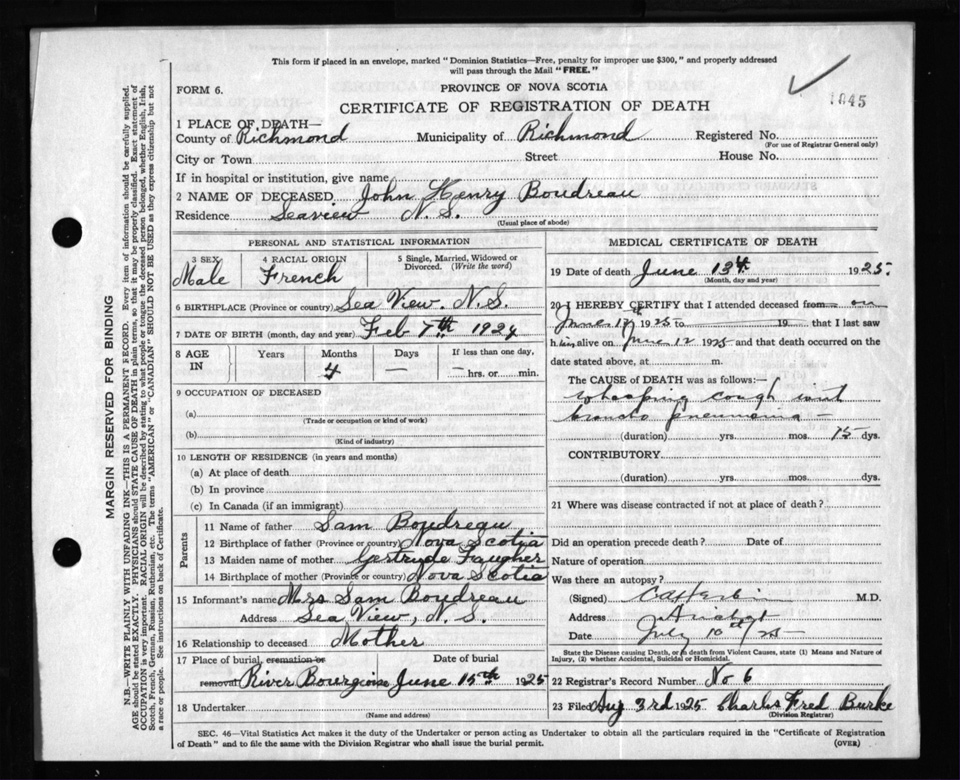 This form if placed in an envelope, marked "Dominion Statistics—Free, penalty for improper use $300," and properly addressed
will pass through the Mail "FREE."
FORM 6.
PROVINCE OF NOVA SCOTIA
CERTIFICATE OF REGISTRATION OF DEATH
1045
1 PLACE OF DEATH—
County of Richmond Municipality of Richmond Registered No.
(For use of Registrar General only)
City or Town Street House No.
If in hospital or institution, give name
2 NAME OF DECEASED John Henry Boudreau
Residence Seaview N.S.
(Usual place of abode)
PERSONAL AND STATISTICAL INFORMATION
3 SEX 4 RACIAL ORIGIN 5 Single, Married, Widowed or
Divorced. (Write the word)
Male French
6 BIRTHPLACE (Province or country) Sea View. N.S.
7 DATE OF BIRTH (month, day and year) Feb 7th 1924
8 AGE IN Years Months Days If less than one day,
4 — — hrs. or min.
9 OCCUPATION OF DECEASED
(a)
(Trade or occupation or kind of work)
(b)
(Kind of industry)
10 LENGTH OF RESIDENCE (in years and months)
(a) At place of death
(b) In province
(c) In Canada (if an immigrant)
Parents
11 Name of father Sam Boudreau
12 Birthplace of father (Province or country) Nova Scotia
13 Maiden name of mother Gertrude Faugher
14 Birthplace of mother (Province or country) Nova Scotia
15 Informant's name Mrs Sam Boudreau
Address Sea View, N.S.
16 Relationship to deceased Mother
17 Place of burial, cremation or Date of burial
removal River Bourgeoise June 15th 1925
18 Undertaker
(Name and address)
MEDICAL CERTIFICATE OF DEATH
19 Date of death June 13th 1925.
(Month, day and year)
20 I HEREBY CERTIFY that I attended deceased from on
June 12th 1925 to 19 that I last saw
h im alive on June 12 1925 and that death occurred on the
date stated above, at m.
The CAUSE of DEATH was as follows:—
Whooping cough
broncho pneumonia —
(duration) yrs. mos. 15 dys.
CONTRIBUTORY
(duration) yrs. mos. dys.
21 Where was disease contracted if not at place of death?
Did an operation precede death? Date of
Nature of operation
Was there an autopsy?
(Signed) M.D.
Address Arichat
Date July 10th 25
State the Disease causing Death, or in death from Violent Causes, state (1) Means and Nature of
Injury, (2) whether Accidental, Suicidal or Homicidal.
22 Registrar's Record Number No 6
23 Filed Aug 3rd 1925 Charles Fred Burke
(Division Registrar)
SEC. 46—Vital Statistics Act makes it the duty of the Undertaker or person acting as Undertaker to obtain all the particulars required in the "Certificate of Registration
of Death" and to file the same with the Division Registrar who shall issue the burial permit.
(OVER)
MARGIN RESERVED FOR BINDING
N.B.—WRITE PLAINLY WITH UNFADING INK—THIS IS A PERMANENT RECORD. Every item of information should be carefully supplied.
AGE should be stated EXACTLY. PHYSICIANS should STATE CAUSE OF DEATH in plain terms, so that it may be properly classified. Exact statement of
OCCUPATION is very important. RACIAL ORIGIN will be described by stating to what people or tongue the deceased person belonged, whether English, Irish,
Scotch, French, German, Russian, Ruthenian, etc. The terms "AMERICAN" or "CANADIAN" SHOULD NOT BE USED as they express citizenship but not
a race or people. See instructions on back of Certificate.